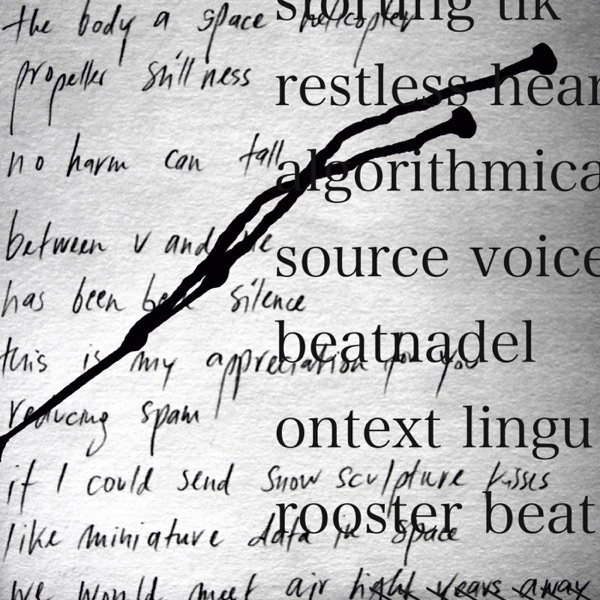 the body a space helicopter
propeller stillness
no harm can fall
between v and
has been silence
this is my appreciation for you
reducing spam
if I could send snow sculpture kisses
like miniature data in space
we would meet air light years away
restless hear
algorithmica
source voice
beatnadel
ontext lingu
rooster beat